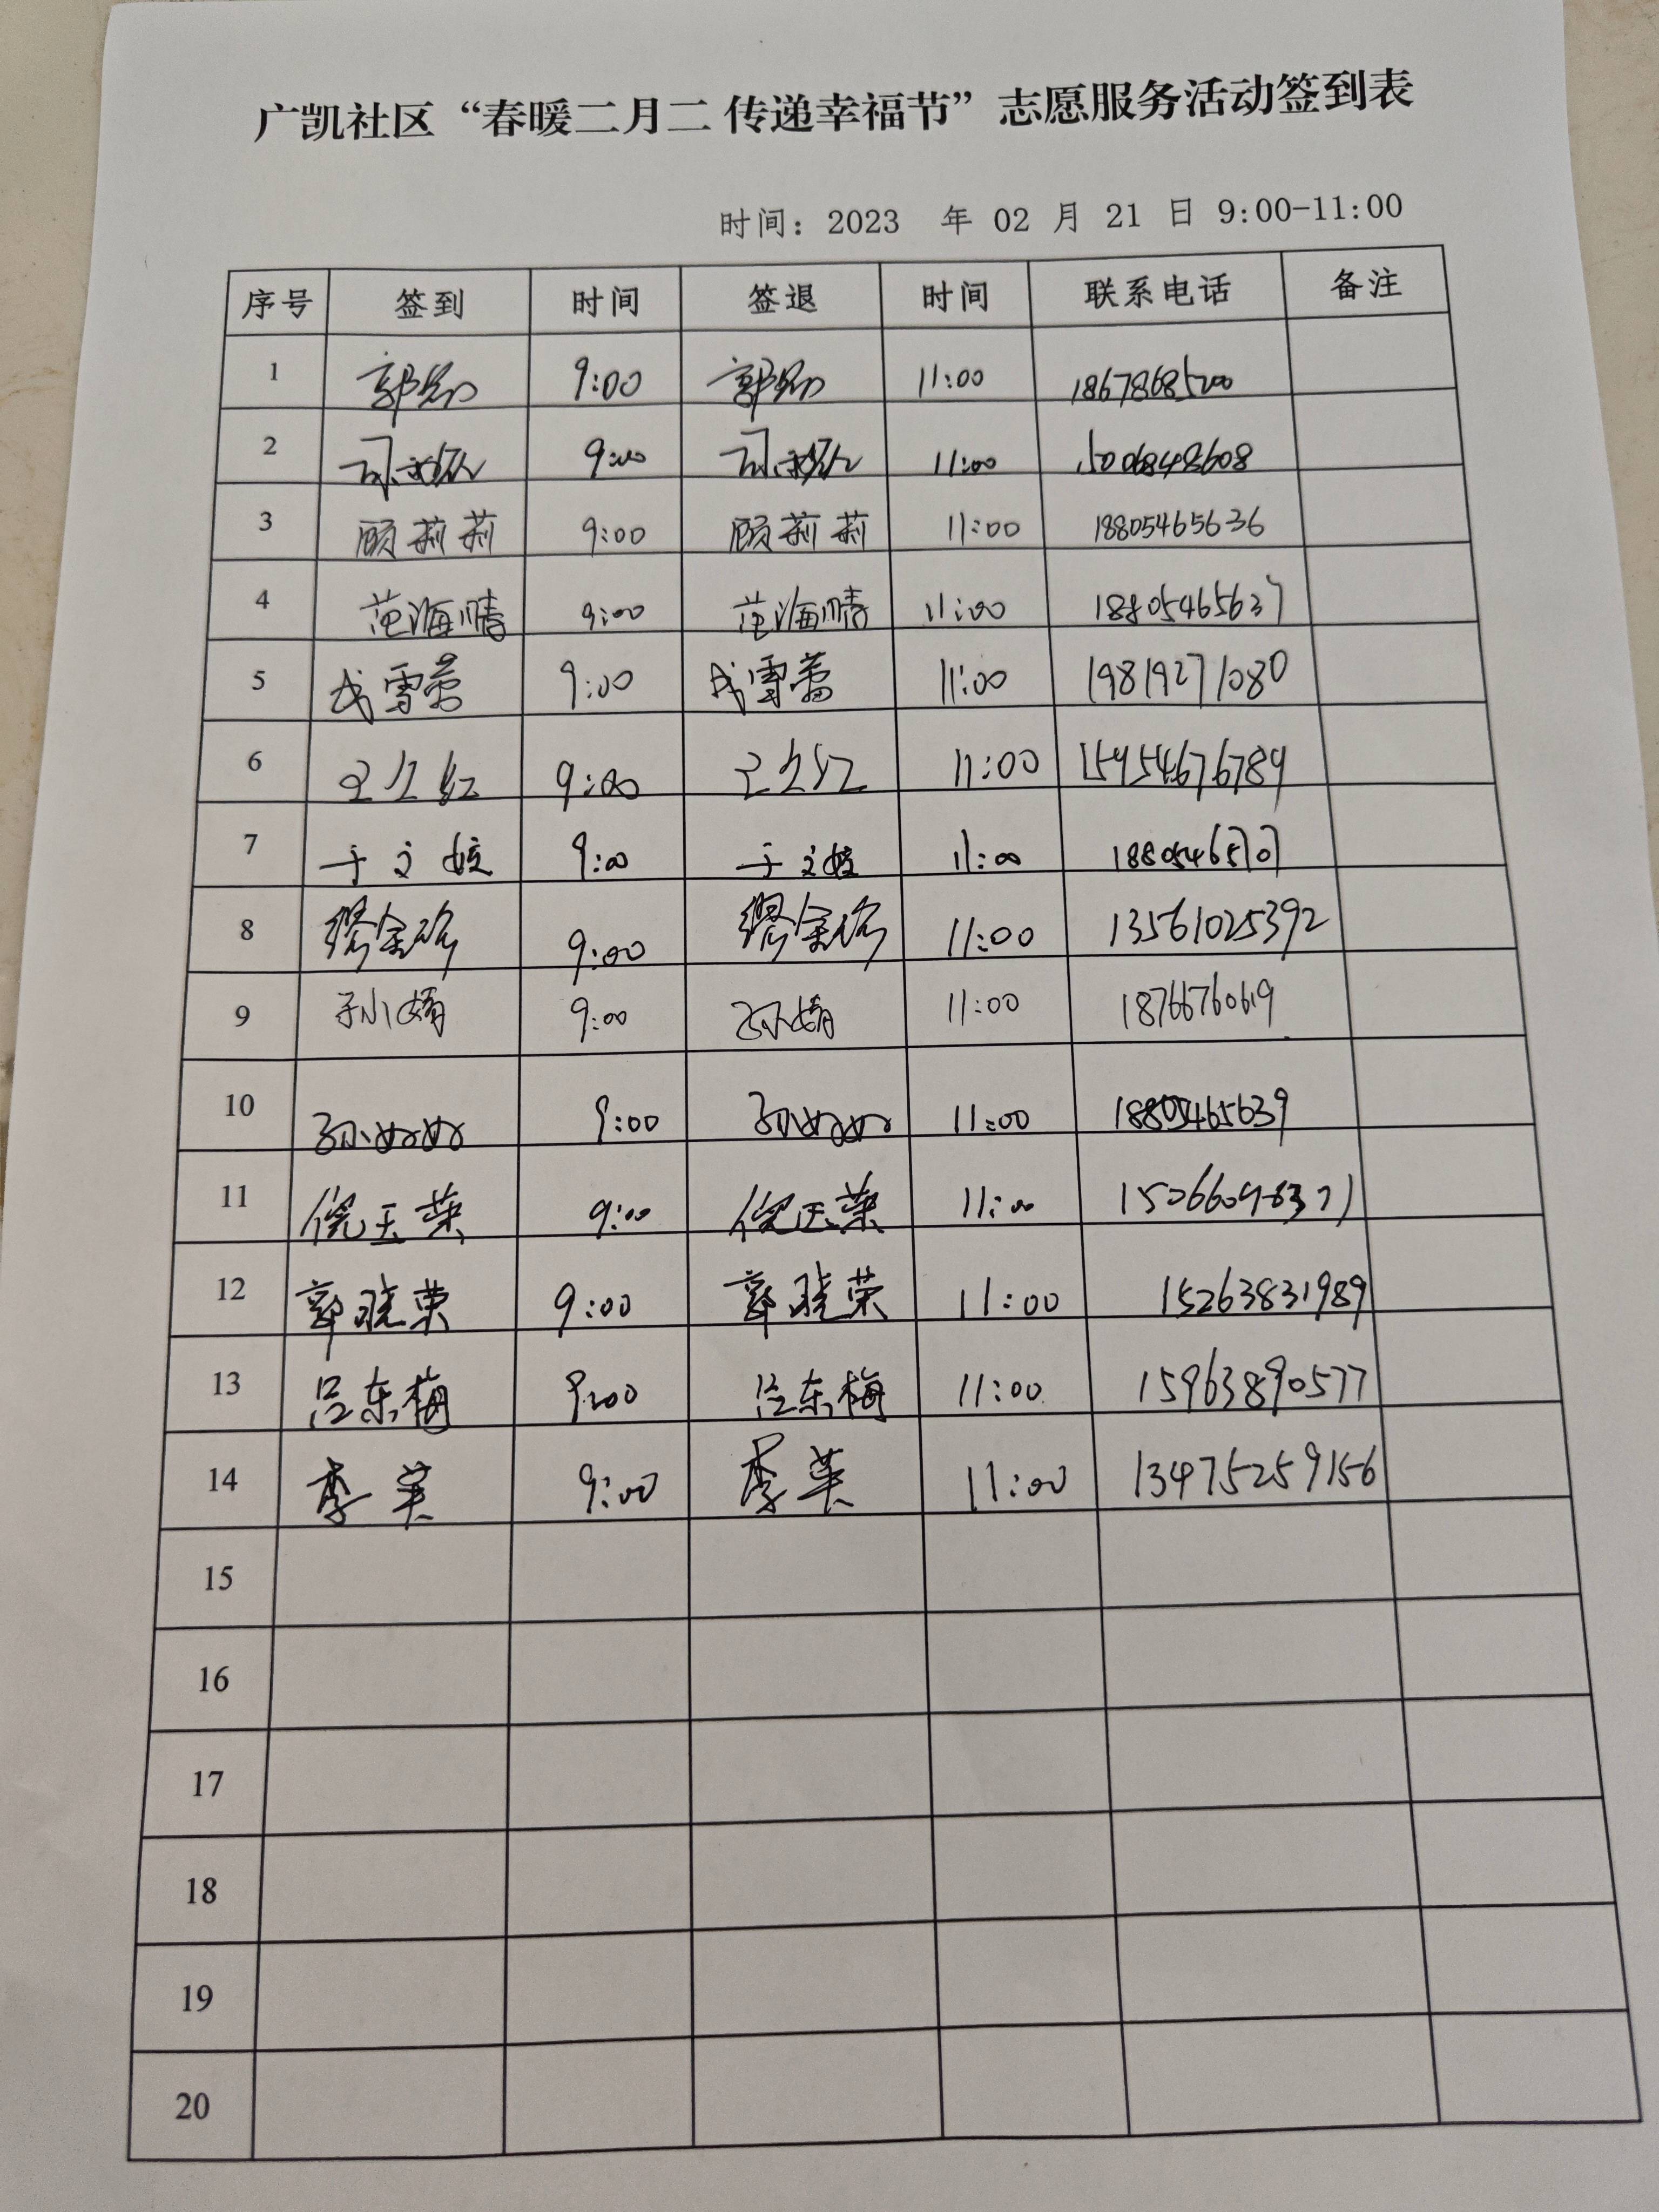 广凯社区“春暖二月二 传递幸福节”志愿服务活动签到表
时间: 2023 年 02 月 21 日 9:00-11:00
序号 签到 时间 签退 时间 联系电话 备注
1 9:00 11:00 18678685200
2 9:00 11:00 15006848608
3 顾莉莉 9:00 顾莉莉 11:00 18805465636
4 范海晴 9:00 范海晴 11:00 18805465637
5 成雪蕾 9:00 成雪蕾 11:00 19819271080
6 9:00 11:00 15954676789
7 于文娃 9:00 于文娃 11:00
8 9:00 11:00 13561025392
9 孙婧 9:00 孙婧 11:00 18766760619
10 孙好好 9:00 孙好好 11:00 18805465639
11 倪玉荣 9:00 倪玉荣 11:00
12 郭晓荣 9:00 郭晓荣 11:00 15263831989
13 吕东梅 9:00 吕东梅 11:00 15963890577
14 李英 9:00 李英 11:00 13475259156
15
16
17
18
19
20